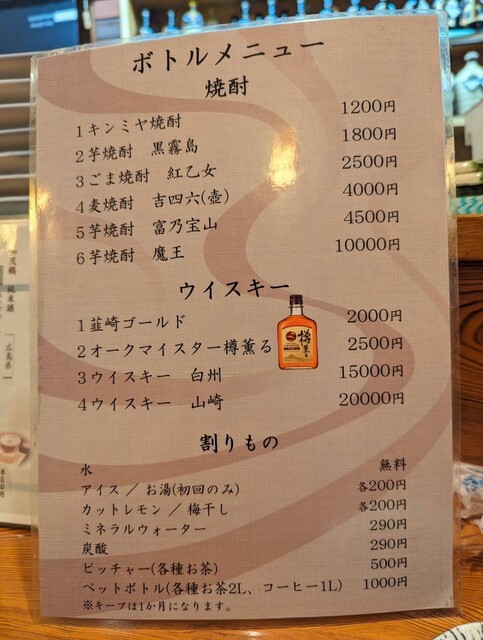 ボトルメニュー
焼酎
1キンミヤ焼酎 1200円
2芋焼酎 黒霧島 1800円
3ごま焼酎 紅乙女 2500円
4麦焼酎 吉四六(壺) 4000円
5芋焼酎 富乃宝山 4500円
6芋焼酎 魔王 10000円
ウイスキー
1韮崎ゴールド 2000円
2オークマイスター樽薫る 2500円
3ウイスキー 白州 15000円
4ウイスキー 山崎 20000円
割りもの
水 無料
アイス／お湯(初回のみ) 各200円
カットレモン／梅干し 各200円
ミネラルウォーター 290円
炭酸 290円
ピッチャー(各種お茶) 500円
ペットボトル(各種お茶2L、コーヒー1L) 1000円
※キープは1か月になります。
樽薫る
鶴 純米酒
(広島県)